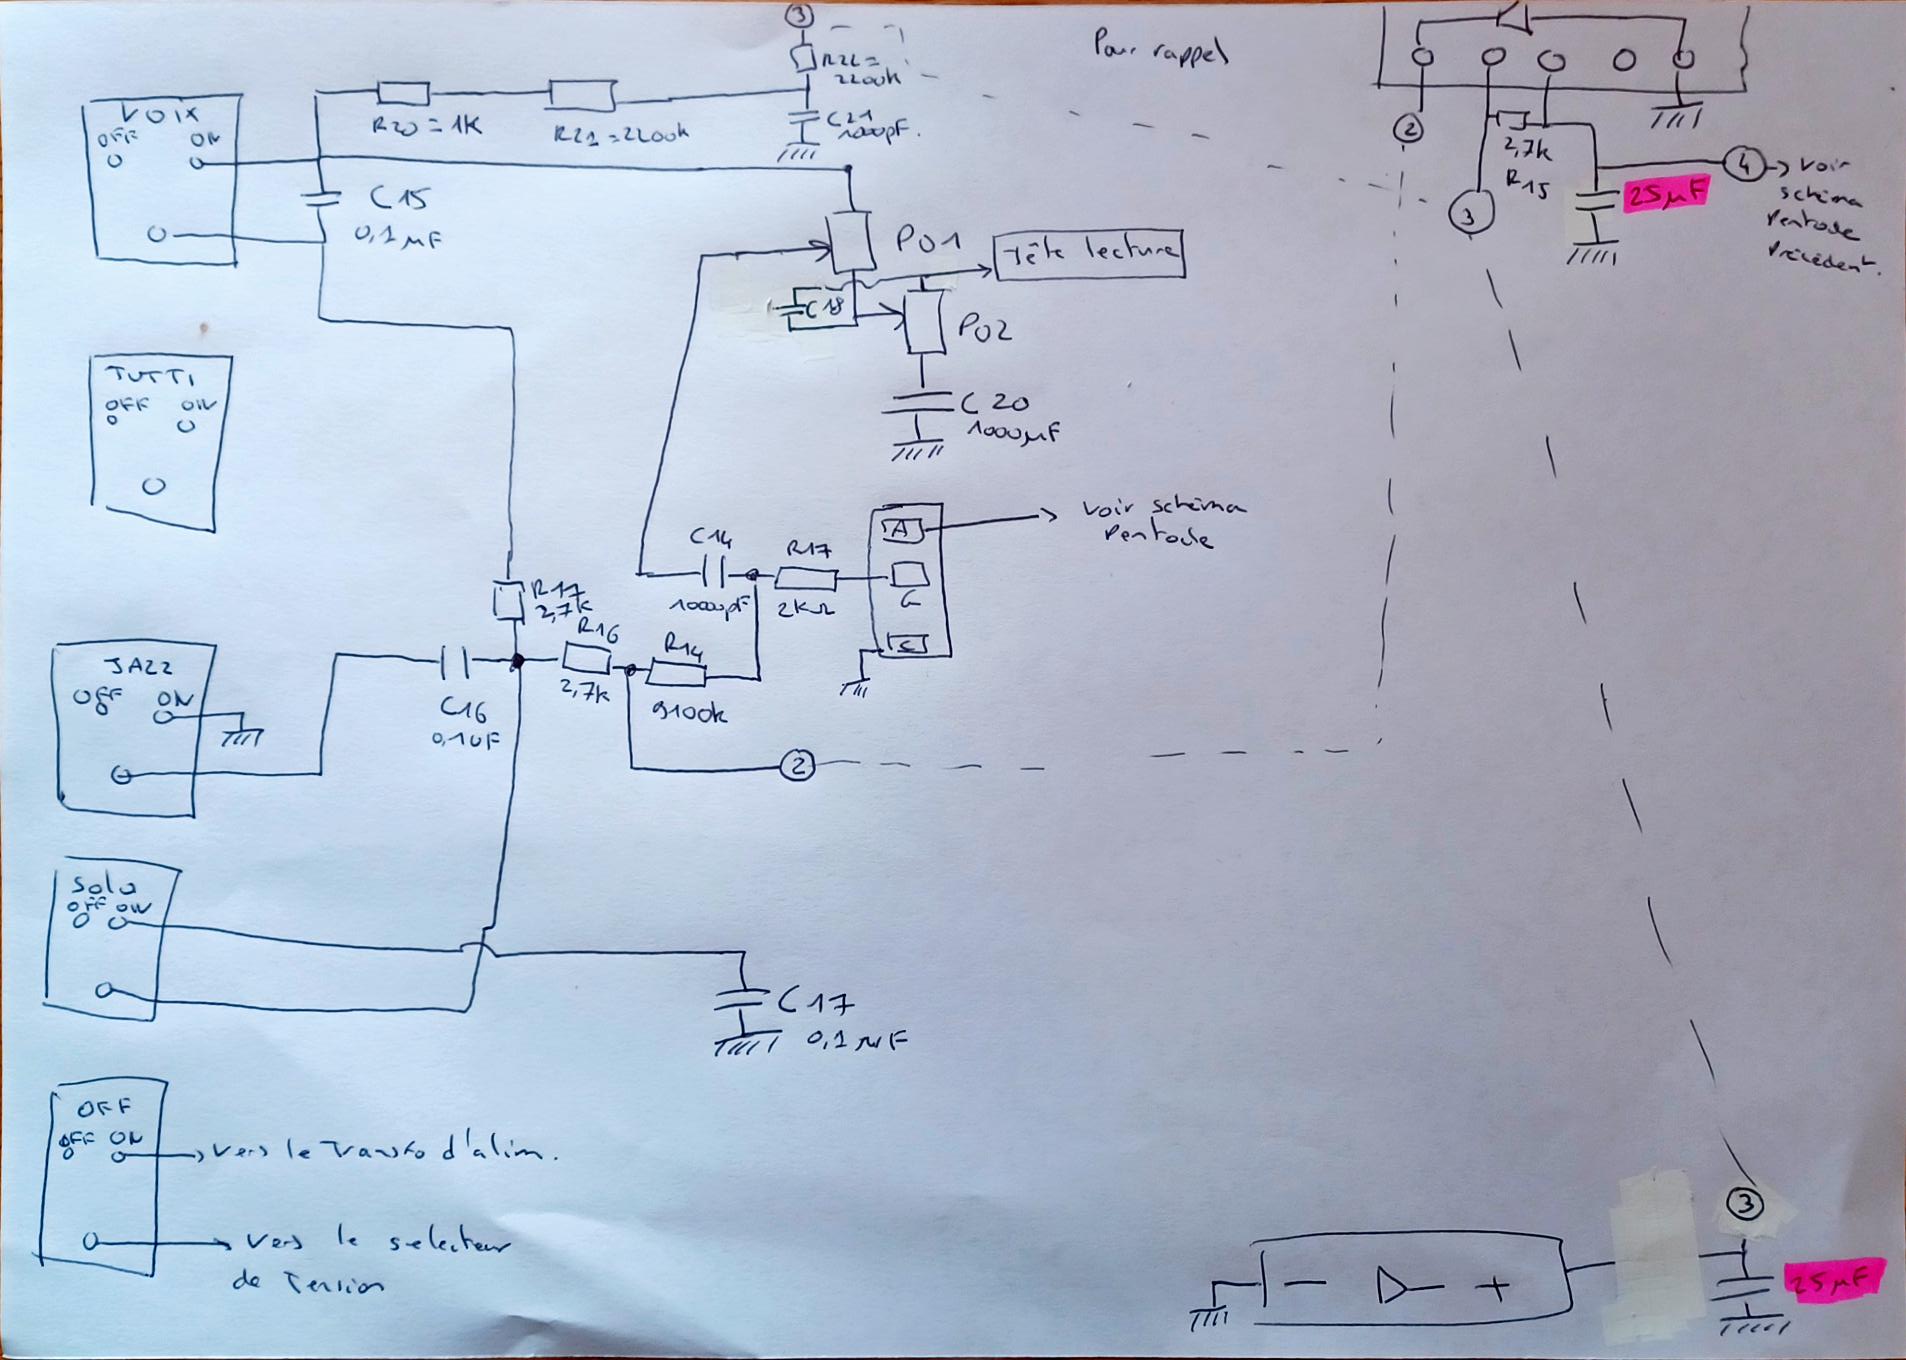 3
R22=
2200k
Pour rappel
VOIX
OFF ON
R20 = 1K
R21 = 2200k
C21
1000pF.
2
2,7k
R15
3
25µF
4
voir
schéma
Pentode
Précédent.
C15
0,1µF
P01
Tête lecture
C18
P02
C20
1000µF
TUTTI
OFF ON
voir schéma
Pentode
A
G
C
C14
1000pF
R17
2KΩ
R17
2,7k
R16
2,7k
R14
9100k
JAZZ
OFF ON
C16
0,1UF
2
Solo
OFF ON
C17
0,1µF
OFF
OFF ON
vers le Transfo d'alim.
vers le selecteur
de Tension
3
- +
25µF